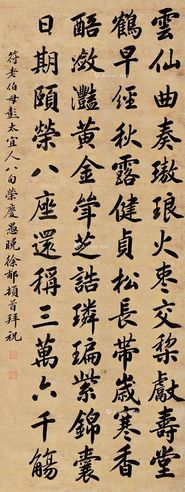 雲仙曲奏璈琅火棗交梨獻壽堂
鶴早經秋露健貞松長帶歲寒香
醅瀲灩黃金斝芝誥璘㻞紫錦囊
日期頤榮八座還稱三萬六千觴
符老伯母彭太宜人八旬榮慶 愚晚徐郁頓首拜祝